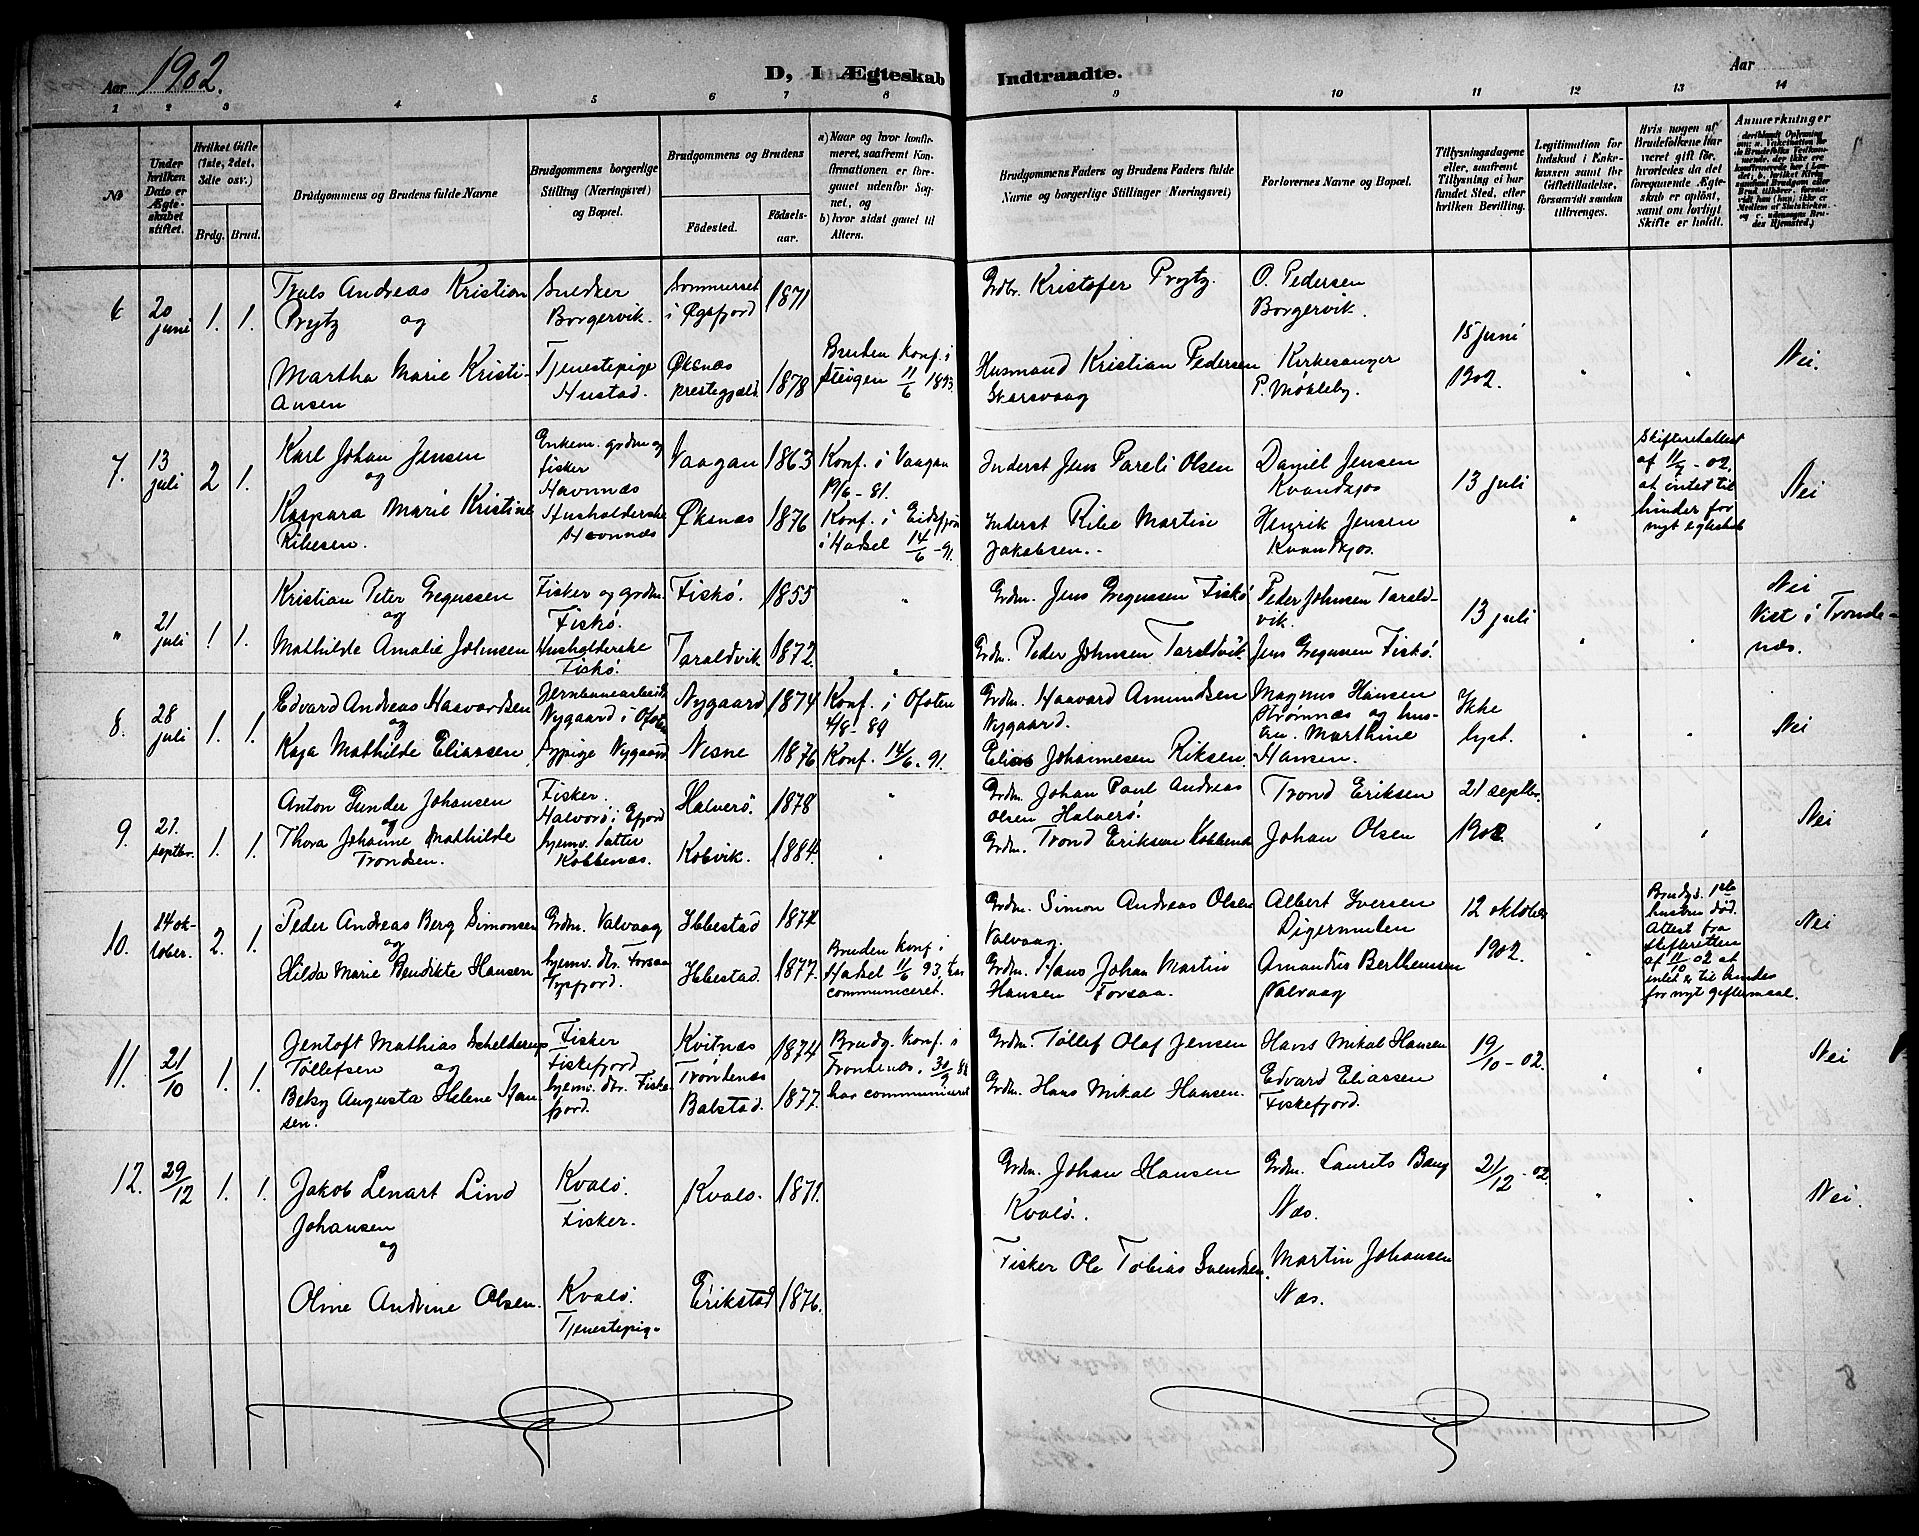 Aar 1902.
D, I Ægteskab Indtraadte.
Aar
1 2 3 4 5 6 7 8 9 10 11 12 13 14
No
Under hvilken Dato er Ægteskabet stiftet.
Hvilket Gifte (1ste, 2det, 3die osv.)
Brdg. Brud.
Brudgommens og Brudens fulde Navne
Brudgommens borgerlige Stilling (Næringsvei) og Bopæl.
Brudgommens og Brudens
Födested.
Födselsaar.
a) Naar og hvor konfirmeret, saafremt Konfirmationen er foregaaet udenfor Sognet, og
b) hvor sidst gaaet til Alters.
Brudgommens Faders og Brudens Faders fulde Navne og borgerlige Stillinger (Næringsvei)
Forlovernes Navne og Bopæl.
Tillysningsdagene eller, saafremt Tillysning ei har fundet Sted, efter hvilken Bevilling.
Legitimation for Indskud i Enkekassen samt for Giftetilladelse, forsaavidt saadan tiltrænges.
Hvis nogen af Brudefolkene har været gift før, hvorledes da det foregaaende Ægteskab er opløst, samt om lovligt Skifte er holdt.
Anmærkninger
6
20 juni
1. 1.
Truls Andreas Kristian
Prytz og
Martha Marie Kristi-
ansen
Snedker
Borgervik.
Tjenestepige
Hustad.
Sommerset
i Øgsfjord
Øksnæs
prestegjæld
1871
1878
Bruden konf. i
Steigen 11/6 1893.
Grdbr. Kristofer Prytz.
Husmand Kristian Pedersen
Skarsvaag
O. Pedersen
Borgervik.
Kirkesanger
P. Møkleby.
15 juni
1902.
"
"
Nei.
7.
13 juli
2 1.
Karl Johan Jensen
og
Kaspara Marie Kristine
Ribesen.
Enkem. grdm og
fisker
Havnnæs
Husholderske
Havnnæs
Vaagan
Øksnæs
1863
1876
Konf. i Vaagan
19/6 - 81.
Konf. i Eidsfjord
i Hadsel 14/6 - 91.
Inderst Jens Pareli Olsen
Inderst Ribe Martin
Jakobsen.
Daniel Jensen
Kvandkjos
Henrik Jensen
Kvandkjos.
13 juli
"
Skifteretsattest
af 11/7 - 02.
at intet til
hinder for
nyt egteskab
Nei
"
21 juli
1. 1.
Kristian Peter Gregussen
og
Mathilde Amalie Johnsen
Fisker og grdm.
Fiskø.
Husholderske
Fiskø.
Fiskø.
Taraldvik
1855
1872.
"
"
Grdm. Jens Gregussen Fiskø
Grdm. Peder Johnsen Taraldvik
Peder Johnsen Tarald-
vik.
Jens Gregussen Fiskø.
13 juli
"
Nei
Viet i Tronde-
næs.
8.
28 juli
1. 1.
Edvard Andreas Haavardsen
og
Kaja Mathilde Eliassen
Jernbanearbeider
Nygaard i Ofoten
Sypige Nygaard
Nygaard
Nesne
1874
1876
Konf. i Ofoten
4/8 - 89
Konf. 14/6. 91.
Grdm. Haavard Amundsen
Nygaard.
Elias Johannesen Riksen.
Magnus Hansen
Strømnæs og hus-
tru. Marthine
Hansen.
Ikke
lyst.
"
"
Nei
9.
21. septbr.
1. 1.
Anton Gunder Johansen
og
Thora Johanne Mathilde
Trondsen.
Fisker.
Halvorö i Efjord
hjemv. datter
Kobbenæs.
Halverö.
Kobvik.
1878
1884.
"
"
Grdm. Johan Paul Andreas
Olsen Halverö.
Grdm. Trond Eriksen Kobbenæs
Trond Eriksen
Johan Olsen
21 septbr.
1902.
"
"
Nei
10.
14 ok-
tober.
2. 1.
Peder Andreas Berg Simonsen
og
Hilda Marie Bendikte Hansen
Grdm. Valvaag
hjemv. dtr. Forsaa
Tysfjord.
Ibbestad
Ibbestad.
1874
1877.
Bruden konf. i
Hadsel 11/6 93, har
communiceret.
Grdm. Simon Andreas Olsen
Valvaag.
Grdm. Hans Johan Martin
Hansen Forsaa.
Albert Iversen
Digermulen
Amandus Bertheussen
Valvaag
12 oktober
1902.
"
Brudgs. 1ste
hustru död.
Attest fra
skifteretten
af 11/10 02 at
intet er til hinder
for nyt giftermaal.
Nei
11.
21/10
1. 1.
Jentoft Mathias Schelderup
Tollefsen og
Beksy Augusta Helene Han
sen.
Fisker
Fiskefjord
hjemv. dtr. Fiske-
fjord.
Kvitnæs
Trondenæs
Balstad.
1874
1877.
Brudg. konf. i
Trondenæs, 30/9 88
har communiceret
Grdm. Tollef Olaf Jensen
Grdm. Hans Mikal Hansen.
Hans Mikal Hansen
Edvard Eliassen
Fiskefjord.
19/10 - 02.
"
"
Nei
12.
29/12
1. 1.
Jakob Lenart Lind
Johansen
og
Oline Andrine Olsen.
Kvalö.
Fisker.
Kvalö.
Tjenestepige
Kvalö.
Erikstad
1871.
1876.
Grdm. Johan Hansen
Kvalö.
Fisker Ole Tobias Svendsen.
Grdm. Laurits Bang
Næs.
Martin Johansen
Næs.
21/12 - 02.
"
"
Nei.